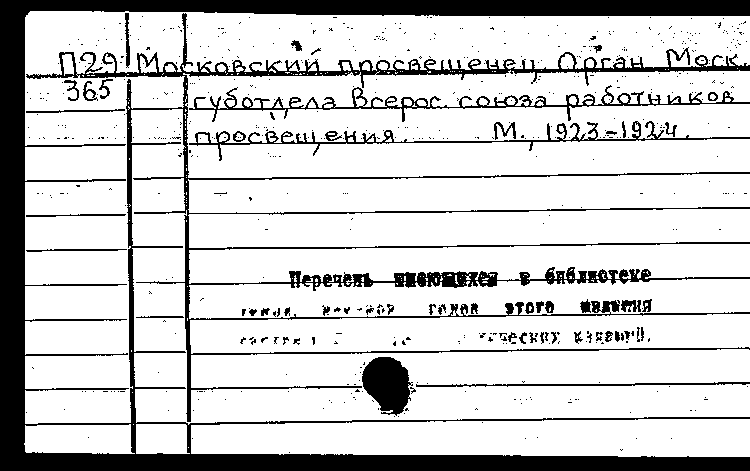 П29 Московский просвещенец. Орган Моск.
365 губотдела Всерос. союза работников
просвещения. М., 1923-1924.
Перечень имеющихся в библиотеке
годов этого издания